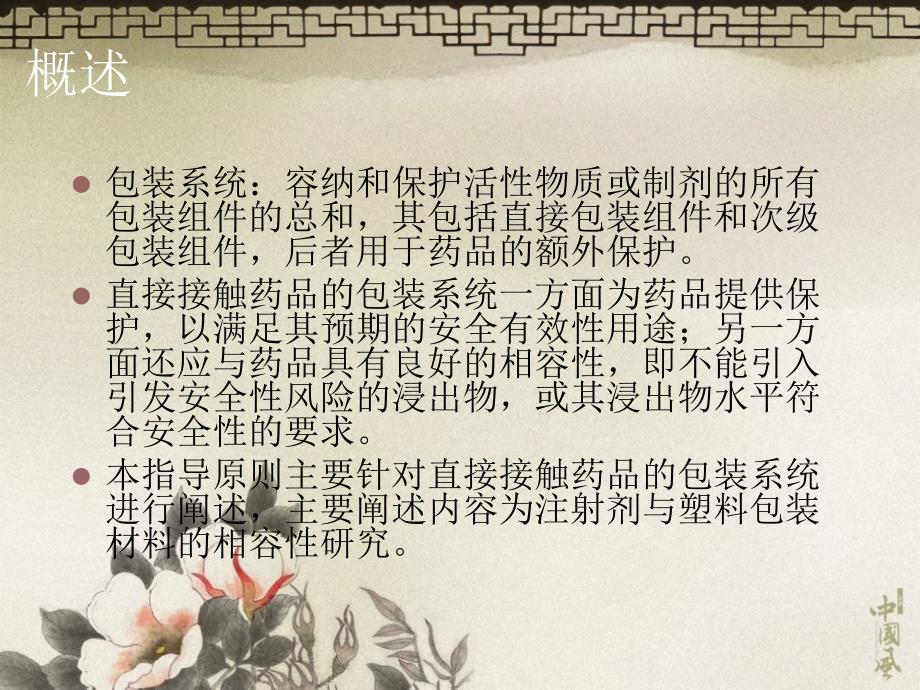 概述
包装系统：容纳和保护活性物质或制剂的所有
包装组件的总和，其包括直接包装组件和次级
包装组件，后者用于药品的额外保护。
直接接触药品的包装系统一方面为药品提供保
护，以满足其预期的安全有效性用途；另一方
面还应与药品具有良好的相容性，即不能引入
引发安全性风险的浸出物，或其浸出物水平符
合安全性的要求。
本指导原则主要针对直接接触药品的包装系统
进行阐述，主要阐述内容为注射剂与塑料包装
材料的相容性研究。
中國風